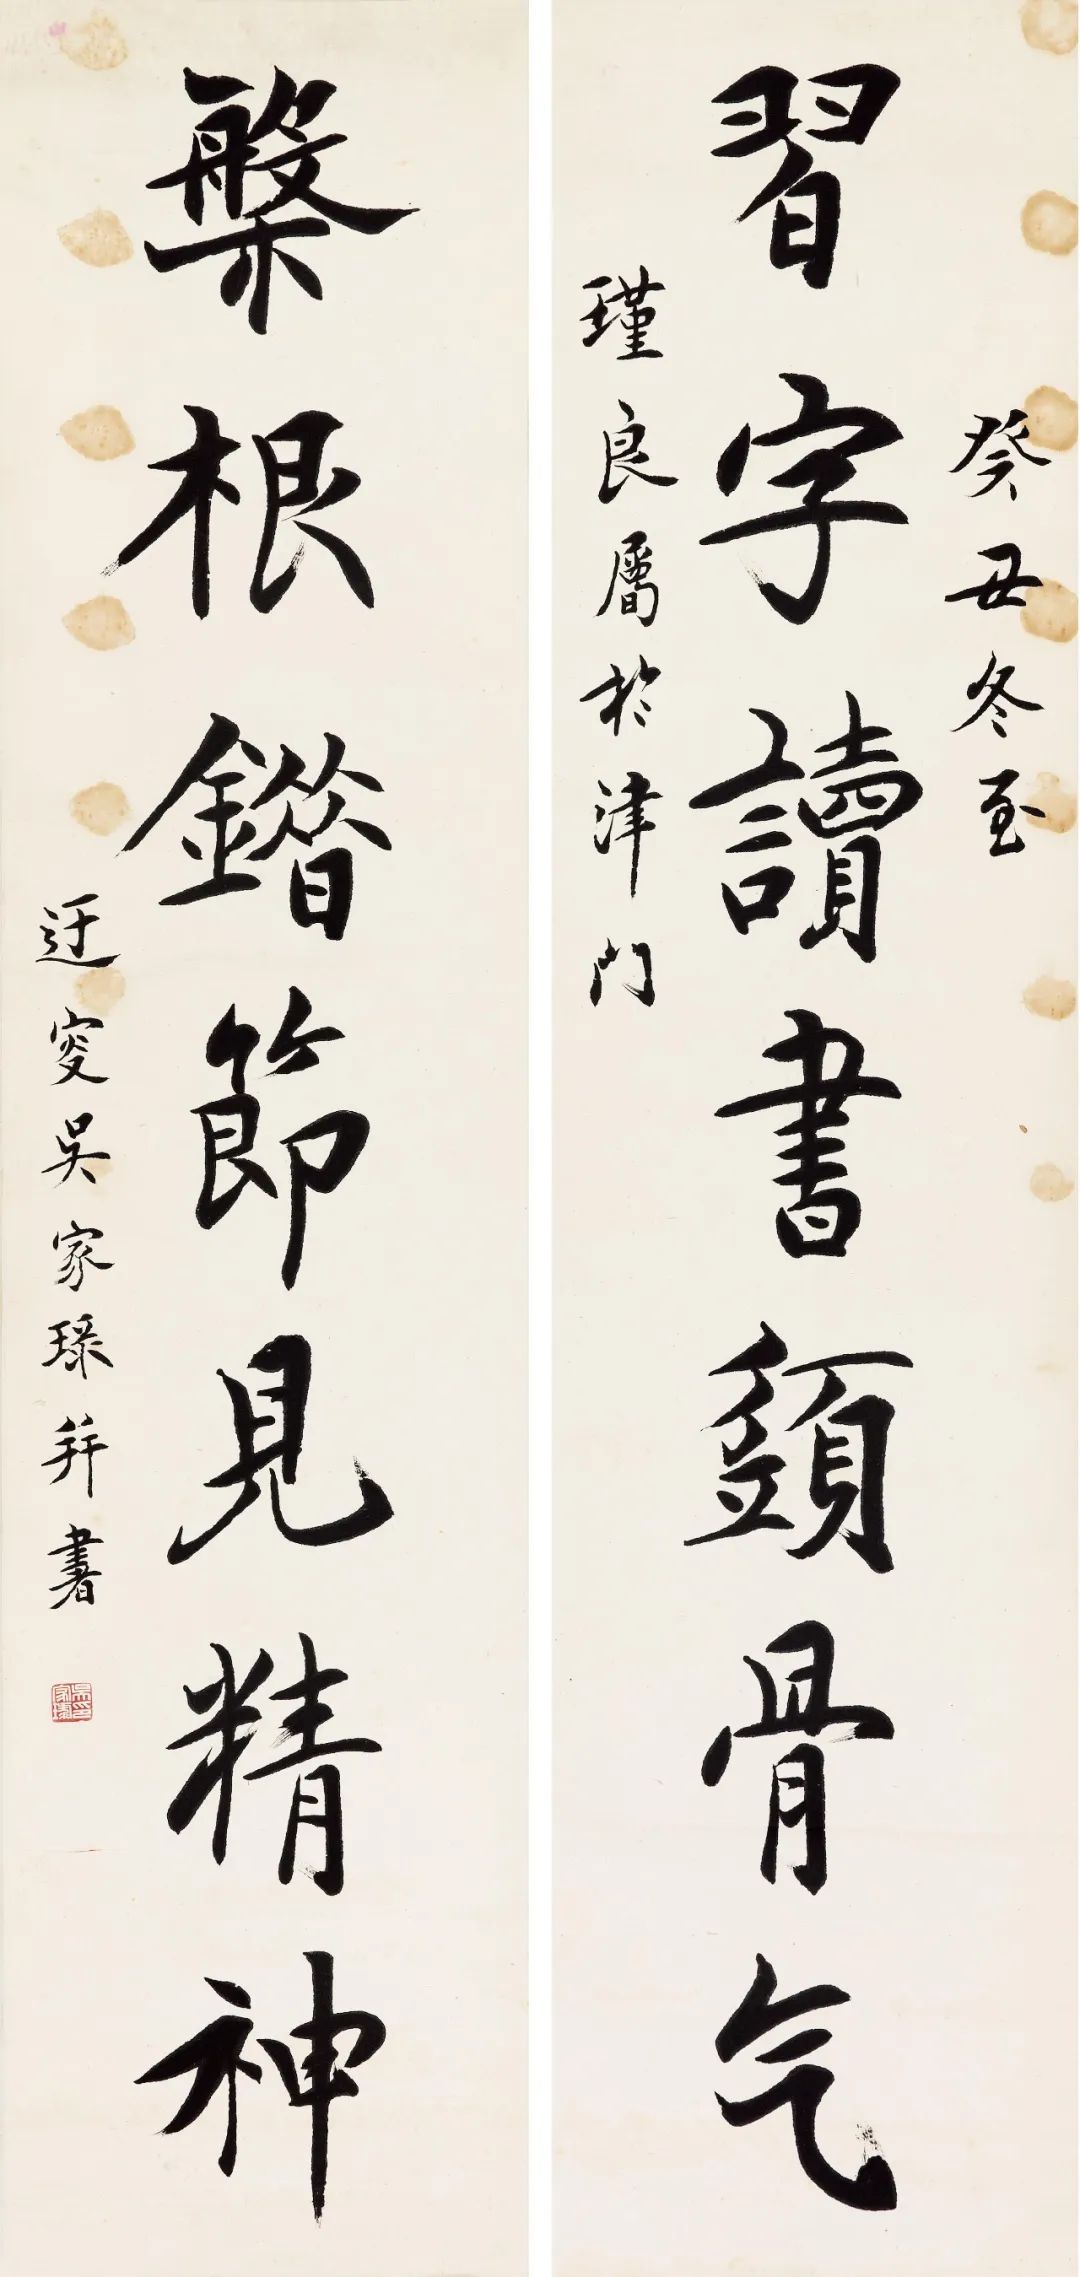 癸丑冬至
習字讀書須骨气
瑾良屬於津门
槃根錯節見精神
迂叜吳家琭并書